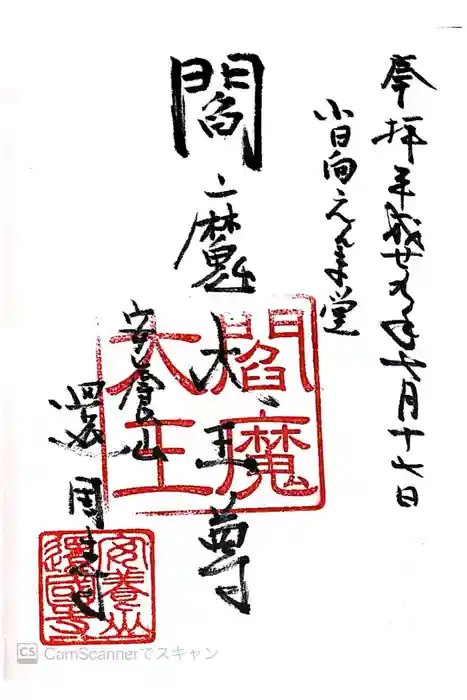 奉拝 平成廿九年七月十七日
小日向えんま堂
閻魔大王尊
閻魔
大王
安養山
還国寺
安養山
還國寺
CS CamScannerでスキャン